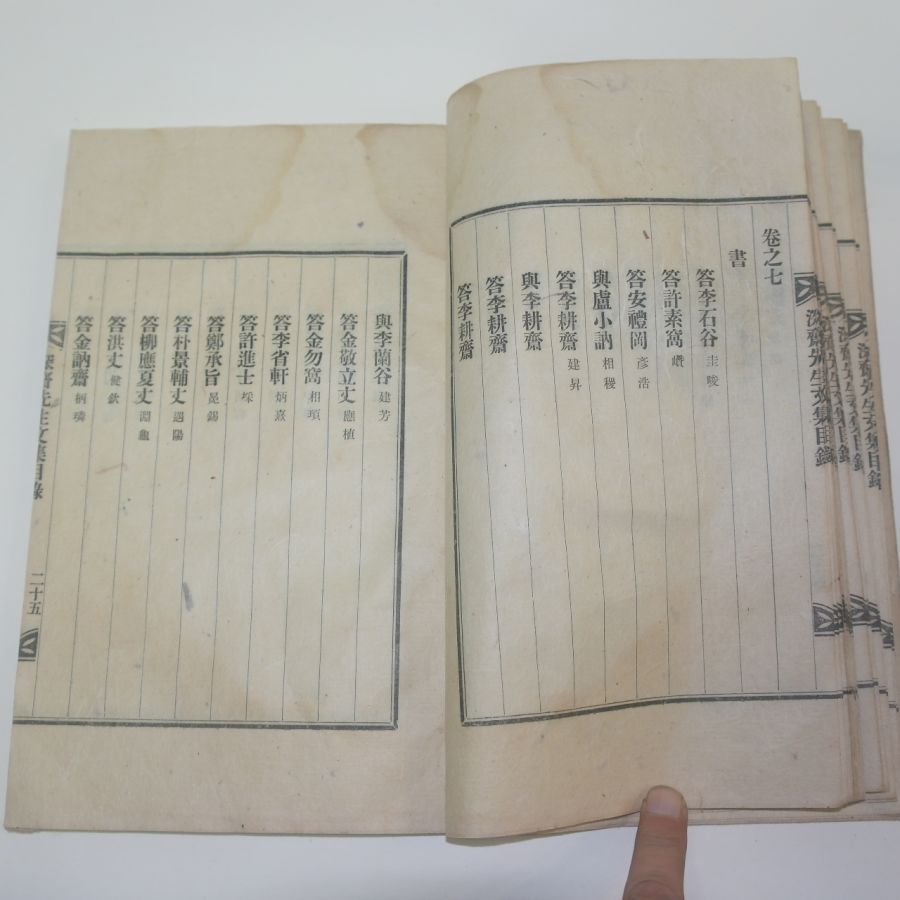 卷之七
書
答李石谷 圭晙
答許素窩 巑
答安禮岡 彦浩
與盧小訥 相稷
答李耕齋 建昇
與李耕齋
答李耕齋
答李耕齋
與李蘭谷 建芳
答金敬立丈 應植
答金勿窩 相頊
答李省軒 炳憙
答許進士 埰
答鄭承旨 昆錫
答朴景輔丈 遇陽
答柳應夏丈 淵龜
答洪丈 健欽
答金訥齋 柄璘
深齋先生文集目錄
二十五
深齋先生文集目錄
深齋先生文集目錄
深齋先生文集目錄